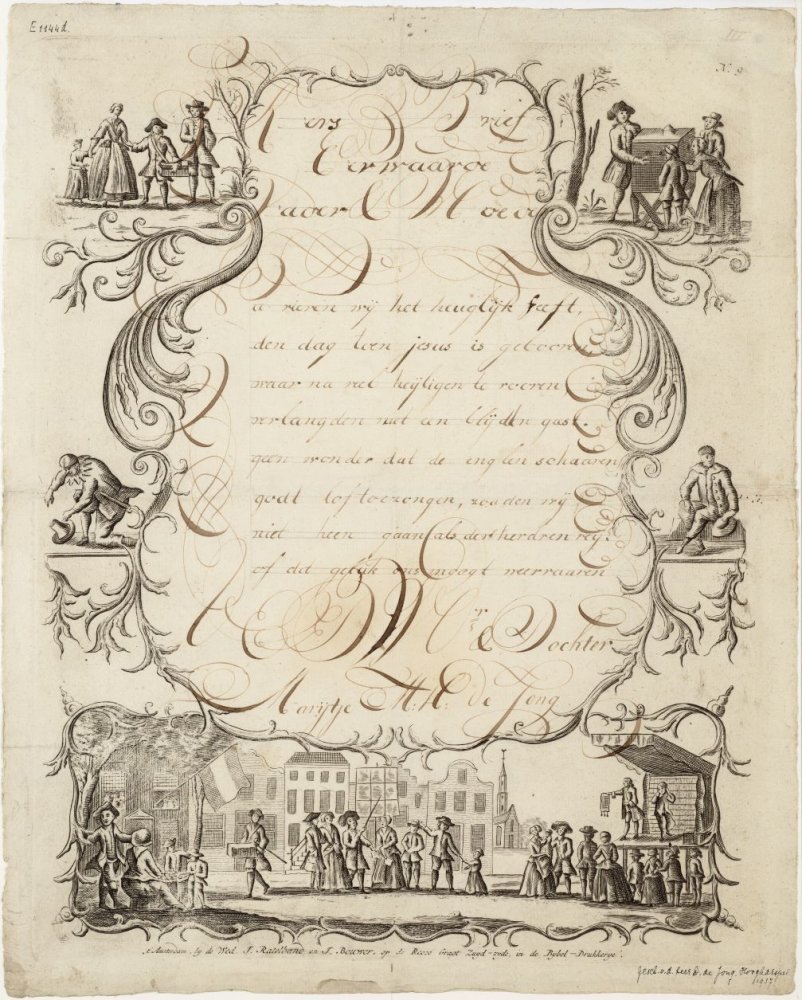 E 1144d.
N: 9
Kers Brief
Eerwaarde
Vader & Moeder
Nu vieren wij het heuglijk feest,
den dag toen jesus is gebooren
waar na veel heijligen te voeren
verlangden met een blijden gast.
geen wonder dat de englen schaaren
godt lof toezongen, zouden wij
niet heen gaan als der herdren reij
of dit geluk ons moogt weervaaren
UE D W Dr & Dochter
Marijtje M: H: de Jong
t'Amsterdam, by de Wed. J. Ratelband en J. Bouwer, op de Roose Graft Zuyd-zyde, in de Bybel-Drukkerye.
Gesch. v. d. Heer D. de Jong, Hoogkarspel
1913